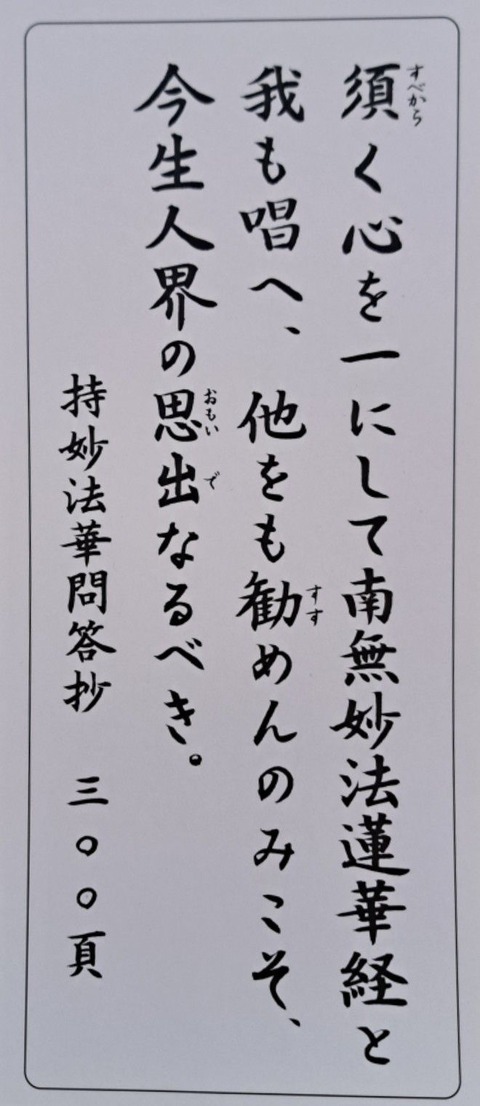 須く心を一にして南無妙法蓮華経と
すべから
我も唱へ、他をも勧めんのみこそ、
すす
今生人界の思出なるべき。
おもい で
持妙法華問答抄 三〇〇頁